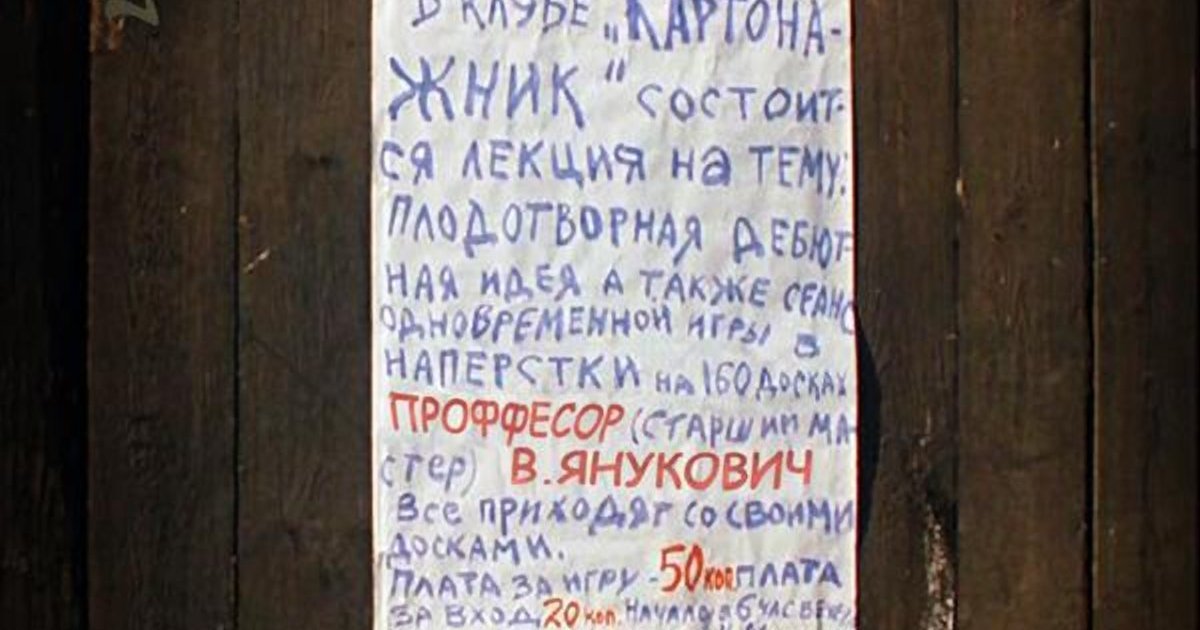 В КЛУБЕ „КАРТОНА-
ЖНИК" СОСТОИТ-
СЯ ЛЕКЦИЯ НА ТЕМУ:
ПЛОДОТВОРНАЯ ДЕБЮТ-
НАЯ ИДЕЯ А ТАКЖЕ СЕАНС
ОДНОВРЕМЕННОЙ ИГРЫ В
НАПЕРСТКИ НА 160 ДОСКАХ
ПРОФФЕСОР (СТАРШИЙ МА-
СТЕР) В. ЯНУКОВИЧ
Все приходят со своими
ДОСКАМИ.
ПЛАТА ЗА ИГРУ - 50 коп. ПЛАТА
ЗА ВХОД 20 коп. НАЧАЛО